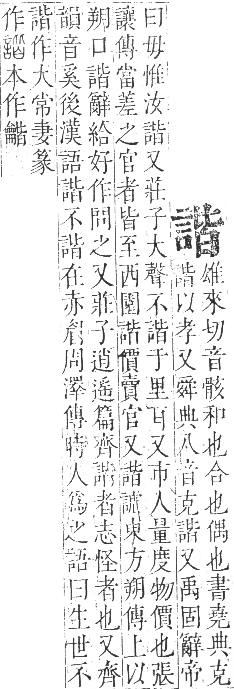 諧
雄來切音骸和也合也偶也書堯典克
諧以孝又舜典八音克諧又禹固辭帝
曰毋惟汝諧又莊子大聲不諧于里耳又市人量度物價也張
讓傳當差之官者皆至西園諧價賣官又諧謔東方朔傳上以
朔口諧辭給好作問之又莊子逍遙篇齊諧者志怪者也又齊
韻音奚後漢語諧不諧在赤眉周澤傳時人爲之語曰生世不
諧作大常妻篆
作本作龤